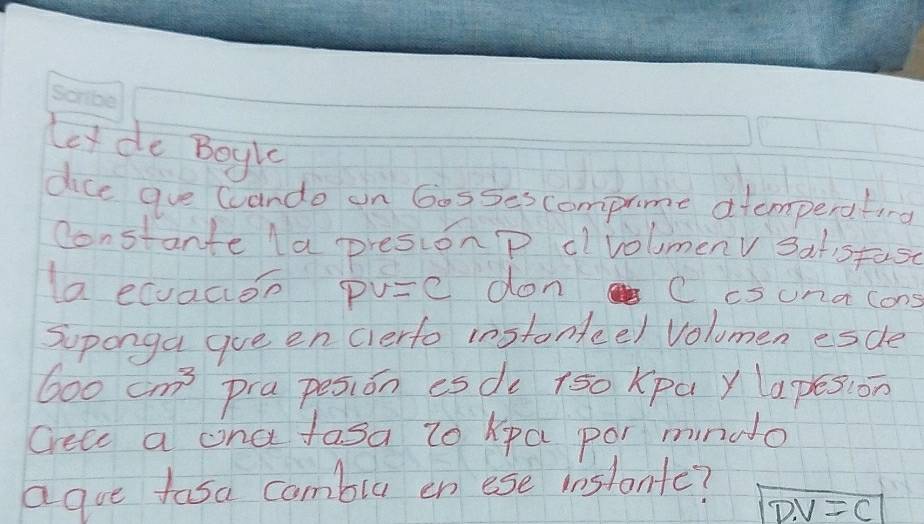 Scribe
Ley de Boyle
dice que cuando un Gas ses comprime a temperatura
constante la presión P el volumen v satisfase
la ecuación PV=C don C es una cons
Suponga que en cierto instante el volumen es de
600 cm³ pra pesión es de 150 Kpa y la pesión
crece a una tasa 20 Kpa por minuto
a que tasa cambia en ese instante?
P.V=C